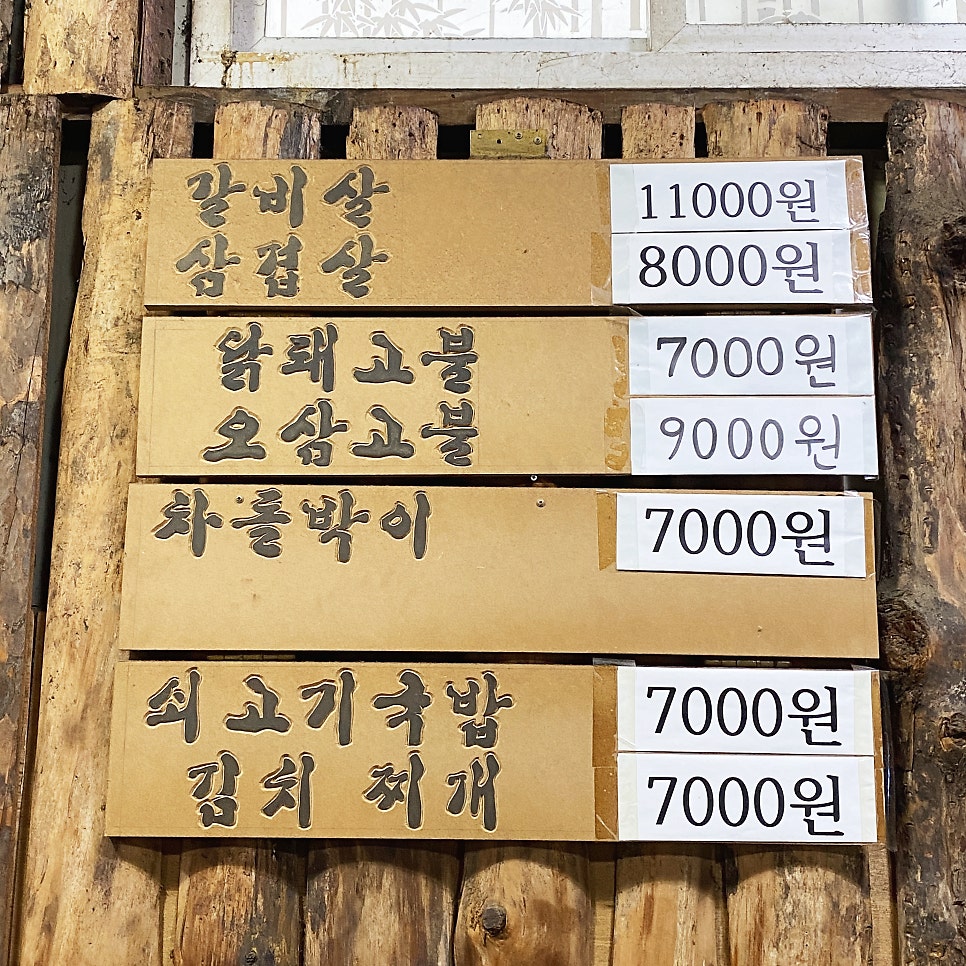 갈비살 11000원
삼겹살 8000원
닭돼고불 7000원
오삼고불 9000원
차돌박이 7000원
쇠고기국밥 7000원
김치 찌개 7000원